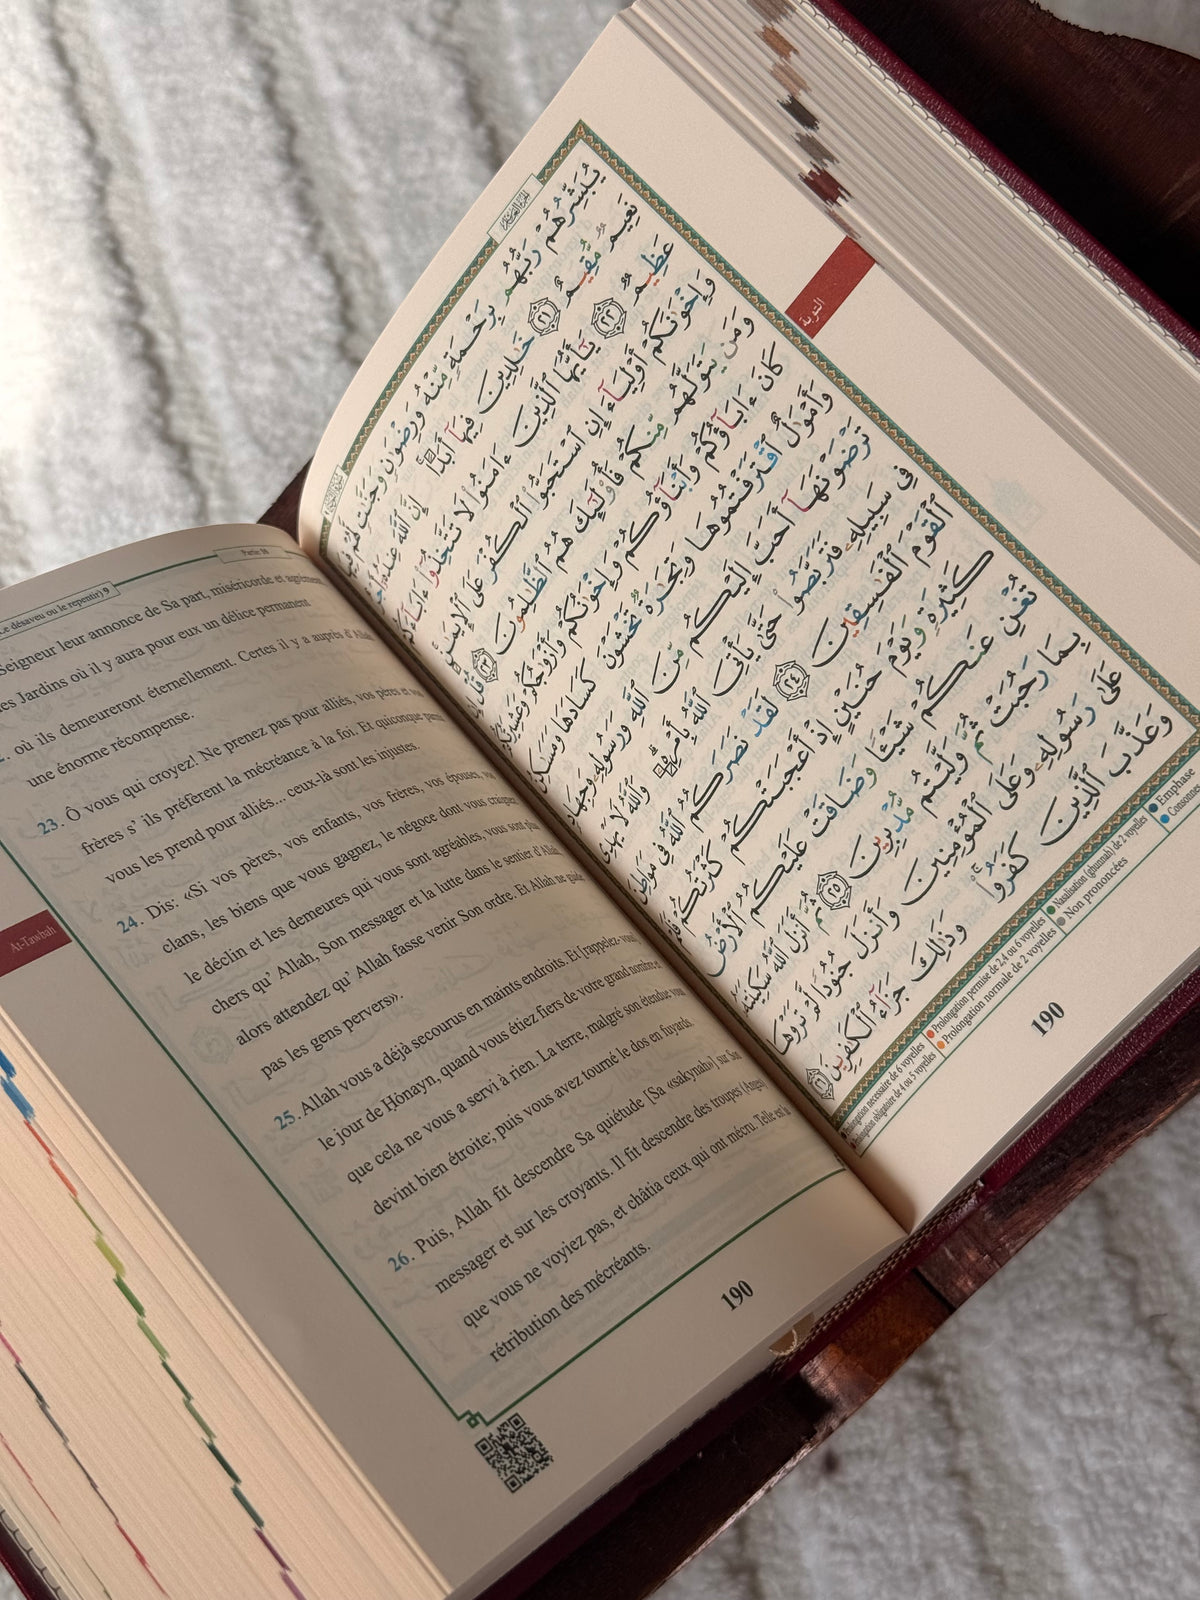 Le désaveu ou le repentir) 9
Partie 10
Seigneur leur annonce de Sa part, miséricorde et agrément
Jardins où il y aura pour eux un délice permanent
où ils demeureront éternellement. Certes il y a auprès d'Allah
une énorme récompense.
23. Ô vous qui croyez! Ne prenez pas pour alliés, vos pères et vos
frères s' ils préfèrent la mécréance à la foi. Et quiconque parmi
vous les prend pour alliés... ceux-là sont les injustes.
24. Dis: «Si vos pères, vos enfants, vos frères, vos épouses, vos
clans, les biens que vous gagnez, le négoce dont vous craignez
le déclin et les demeures qui vous sont agréables, vous sont plus
chers qu' Allah, Son messager et la lutte dans le sentier d'Allah,
alors attendez qu' Allah fasse venir Son ordre. Et Allah ne guide
pas les gens pervers».
25. Allah vous a déjà secourus en maints endroits. Et [rappelez-vous]
le jour de Hónayn, quand vous étiez fiers de votre grand nombre et
que cela ne vous a servi à rien. La terre, malgré son étendue vous
devint bien étroite; puis vous avez tourné le dos en fuyards.
26. Puis, Allah fit descendre Sa quiétude [Sa «sakyna»] sur Son
messager et sur les croyants. Il fit descendre des troupes (Anges)
que vous ne voyiez pas, et châtia ceux qui ont mécru. Telle est la
rétribution des mécréants.
At-Tawbah
190
التوبة
يُبَشِّرُهُمْ رَبُّهُم بِرَحْمَةٍ مِّنْهُ وَرِضْوَٰنٍ وَجَنَّٰتٍ لَّهُمْ فِيهَا
نَعِيمٌ مُّقِيمٌ ٢١ خَٰلِدِينَ فِيهَآ أَبَدًا إِنَّ ٱللَّهَ عِندَهُۥٓ أَجْرٌ
عَظِيمٌ ٢٢ يَٰٓأَيُّهَا ٱلَّذِينَ ءَامَنُوا۟ لَا تَتَّخِذُوٓا۟ ءَابَآءَكُمْ
وَإِخْوَٰنَكُمْ أَوْلِيَآءَ إِنِ ٱسْتَحَبُّوا۟ ٱلْكُفْرَ عَلَى ٱلْإِيمَٰنِ
وَمَن يَتَوَلَّهُم مِّنكُمْ فَأُو۟لَٰٓئِكَ هُمُ ٱلظَّٰلِمُونَ ٢٣ قُلْ إِن
كَانَ ءَابَآؤُكُمْ وَأَبْنَآؤُكُمْ وَإِخْوَٰنُكُمْ وَأَزْوَٰجُكُمْ وَعَشِيرَتُكُمْ
وَأَمْوَٰلٌ ٱقْتَرَفْتُمُوهَا وَتِجَٰرَةٌ تَخْشَوْنَ كَسَادَهَا وَمَسَٰكِنُ
تَرْضَوْنَهَآ أَحَبَّ إِلَيْكُم مِّنَ ٱللَّهِ وَرَسُولِهِۦ وَجِهَادٍ
فِى سَبِيلِهِۦ فَتَرَبَّصُوا۟ حَتَّىٰ يَأْتِىَ ٱللَّهُ بِأَمْرِهِۦ وَٱللَّهُ لَا يَهْدِى
ٱلْقَوْمَ ٱلْفَٰسِقِينَ ٢٤ لَقَدْ نَصَرَكُمُ ٱللَّهُ فِى مَوَاطِنَ
كَثِيرَةٍ وَيَوْمَ حُنَيْنٍ إِذْ أَعْجَبَتْكُمْ كَثْرَتُكُمْ فَلَمْ
تُغْنِ عَنكُمْ شَيْـًٔا وَضَاقَتْ عَلَيْكُمُ ٱلْأَرْضُ
بِمَا رَحُبَتْ ثُمَّ وَلَّيْتُم مُّدْبِرِينَ ٢٥ ثُمَّ أَنزَلَ ٱللَّهُ سَكِينَتَهُۥ
عَلَىٰ رَسُولِهِۦ وَعَلَى ٱلْمُؤْمِنِينَ وَأَنزَلَ جُنُودًا لَّمْ تَرَوْهَا
وَعَذَّبَ ٱلَّذِينَ كَفَرُوا۟ وَذَٰلِكَ جَزَآءُ ٱلْكَٰفِرِينَ ٢٦
Prolongation nécessaire de 6 voyelles Prolongation permise de 2,4 ou 6 voyelles Nasalisation (ghunnah) de 2 voyelles Emphase
Prolongation obligatoire de 4 ou 5 voyelles Prolongation normale de 2 voyelles Non prononcées Consonne
190